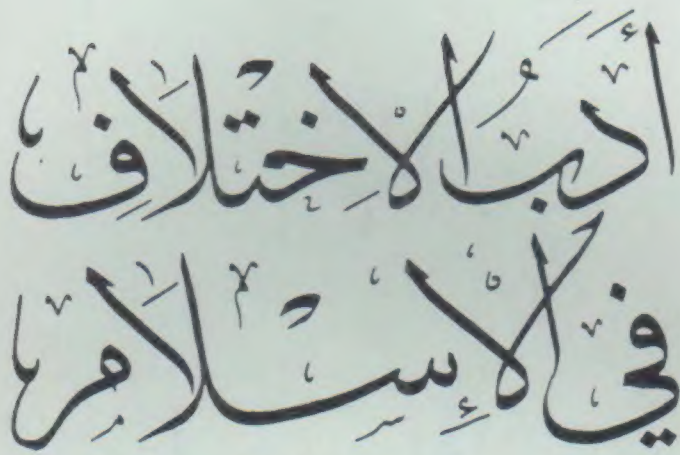 أَدَبُ الاِخْتِلَافِ
فِي الإِسْلَام